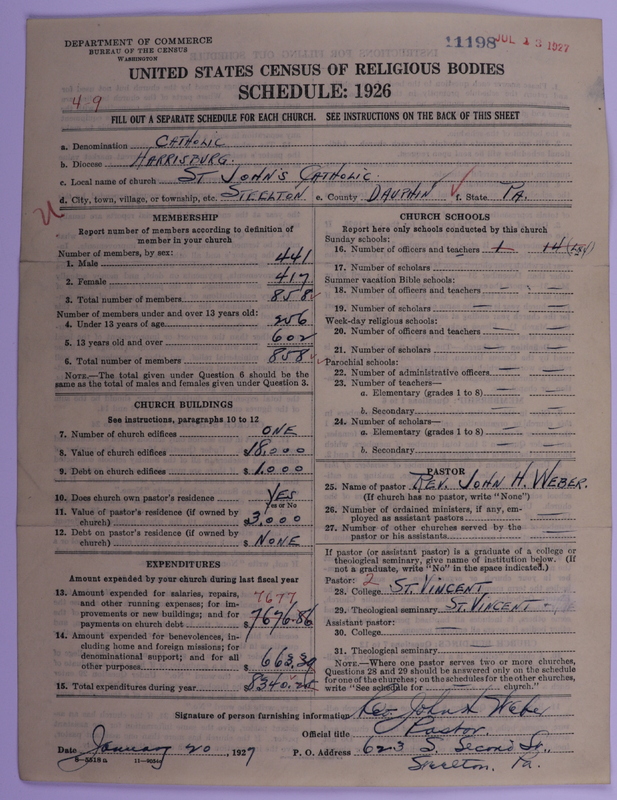 DEPARTMENT OF COMMERCE
BUREAU OF THE CENSUS
WASHINGTON
11198 JUL 13 1927
UNITED STATES CENSUS OF RELIGIOUS BODIES
SCHEDULE: 1926
4-9
FILL OUT A SEPARATE SCHEDULE FOR EACH CHURCH. SEE INSTRUCTIONS ON THE BACK OF THIS SHEET
a. Denomination CATHOLIC
b. Diocese HARRISBURG.
c. Local name of church ST JOHN'S CATHOLIC.
d. City, town, village, or township, etc. STEELTON. e. County DAUPHIN f. State PA.
MEMBERSHIP
Report number of members according to definition of
member in your church
Number of members, by sex:
1. Male 441
2. Female 417
3. Total number of members 858
Number of members under and over 13 years old:
4. Under 13 years of age 256
5. 13 years old and over 602
6. Total number of members 858
NOTE.—The total given under Question 6 should be the
same as the total of males and females given under Question 3.
CHURCH BUILDINGS
See instructions, paragraphs 10 to 12
7. Number of church edifices ONE
8. Value of church edifices $18,000
9. Debt on church edifices $1,000
10. Does church own pastor's residence YES
Yes or No
11. Value of pastor's residence (if owned by
church) $3,000
12. Debt on pastor's residence (if owned by
church) $ NONE
EXPENDITURES
Amount expended by your church during last fiscal year
13. Amount expended for salaries, repairs, 7677
and other running expenses; for im-
provements or new buildings; and for
payments on church debt $7676.86
14. Amount expended for benevolences, in-
cluding home and foreign missions; for
denominational support; and for all
other purposes $663.39
15. Total expenditures during year $8340.25
CHURCH SCHOOLS
Report here only schools conducted by this church
Sunday schools:
16. Number of officers and teachers 1 14
17. Number of scholars
Summer vacation Bible schools:
18. Number of officers and teachers
19. Number of scholars
Week-day religious schools:
20. Number of officers and teachers
21. Number of scholars
Parochial schools:
22. Number of administrative officers
23. Number of teachers—
a. Elementary (grades 1 to 8)
b. Secondary
24. Number of scholars—
a. Elementary (grades 1 to 8)
b. Secondary
PASTOR
25. Name of pastor REV. JOHN H. WEBER.
(If church has no pastor, write "None")
26. Number of ordained ministers, if any, em-
ployed as assistant pastors
27. Number of other churches served by the
pastor or his assistants
If pastor (or assistant pastor) is a graduate of a college or
theological seminary, give name of institution below. (If
not a graduate, write "No" in the space indicated.)
Pastor: 2
28. College ST. VINCENT
29. Theological seminary ST. VINCENT
Assistant pastor:
30. College
31. Theological seminary
NOTE.—Where one pastor serves two or more churches,
Questions 28 and 29 should be answered only on the schedule
for one of the churches; on the schedules for the other churches,
write "See schedule for church."
Signature of person furnishing information Rev John H Weber
Official title Pastor
Date January 20, 1927 P. O. Address 623 S. Second St.,
Steelton, Pa.
8-5518a 11-9054